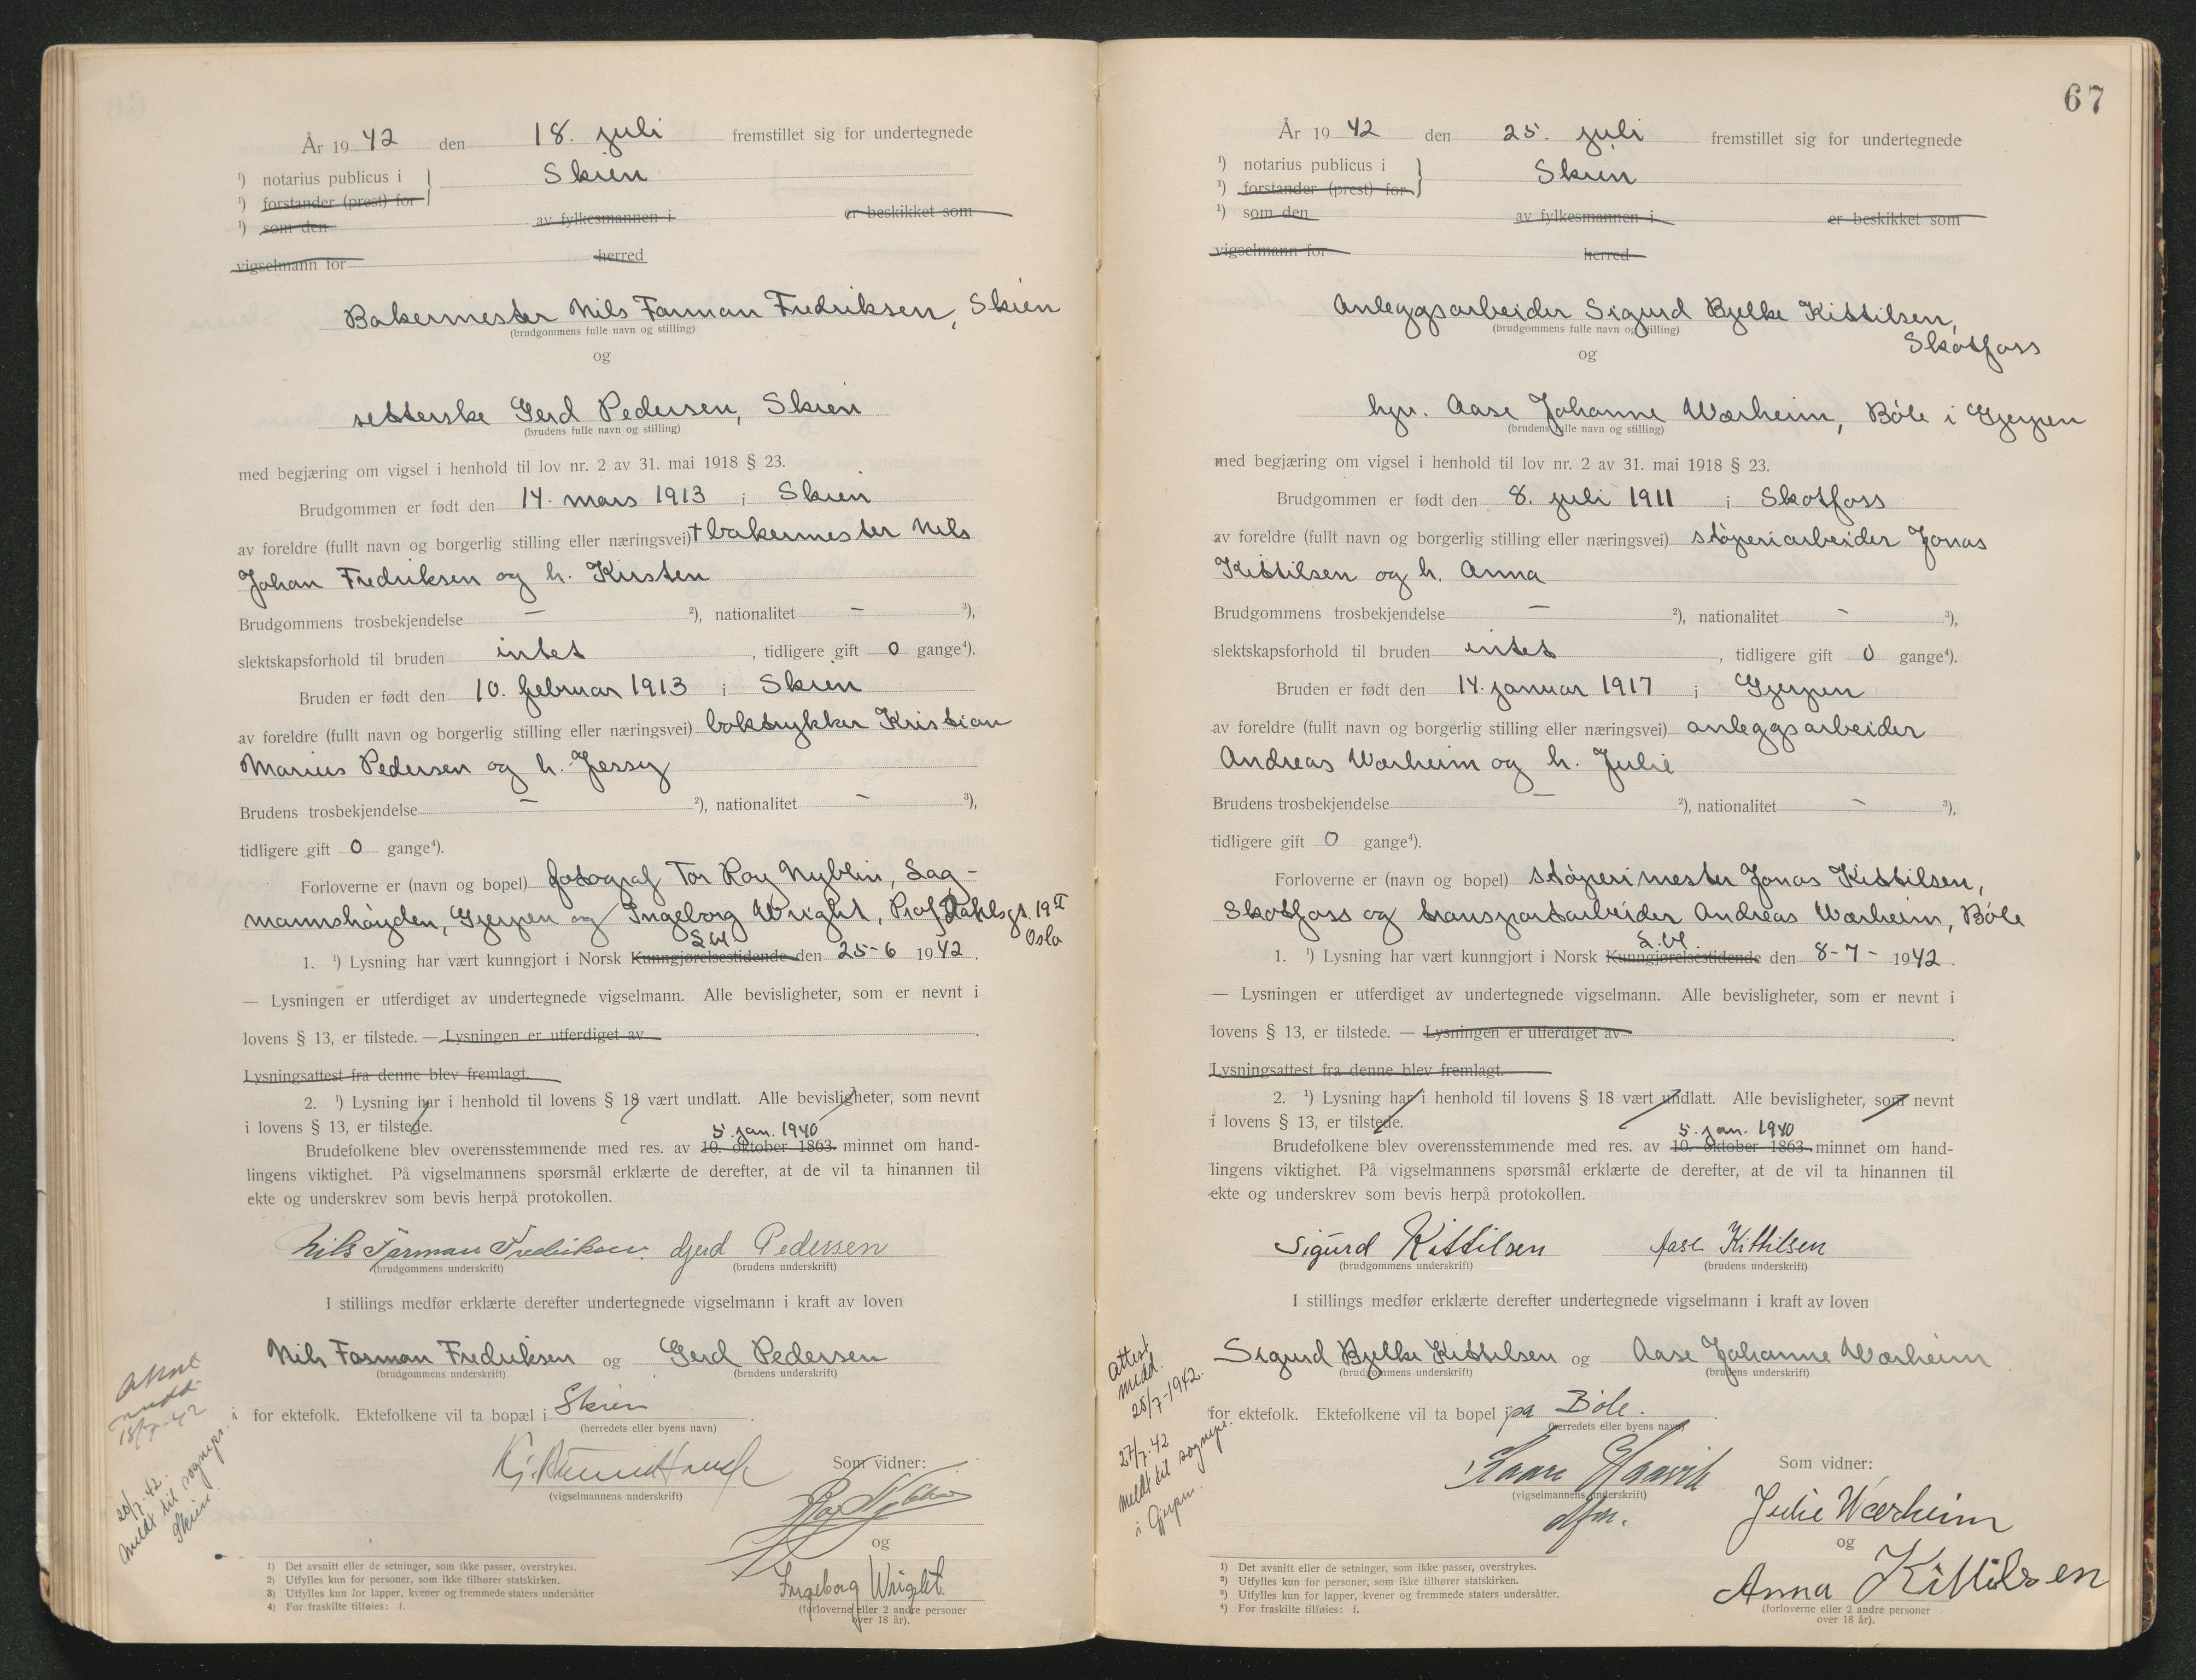 År 1942 den 18. juli fremstillet sig for undertegnede
¹) notarius publicus i } Skien
¹) forstander (prest) for
¹) som den av fylkesmannen i er beskikket som
vigselmann for herred
Bakermester Nils Farman Fredriksen, Skien
(brudgommens fulle navn og stilling)
og
setterske Gerd Pedersen, Skien
(brudens fulle navn og stilling)
med begjæring om vigsel i henhold til lov nr. 2 av 31. mai 1918 § 23.
Brudgommen er født den 14. mars 1913 i Skien
av foreldre (fullt navn og borgerlig stilling eller næringsvei) † bakermester Nils
Johan Fredriksen og h. Kirsten
Brudgommens trosbekjendelse – ²), nationalitet – ³),
slektskapsforhold til bruden intet, tidligere gift 0 gange⁴).
Bruden er født den 10. februar 1913 i Skien
av foreldre (fullt navn og borgerlig stilling eller næringsvei) boktrykker Kristian
Marius Pedersen og h. Jessy
Brudens trosbekjendelse – ²), nationalitet – ³),
tidligere gift 0 gange⁴).
Forloverne er (navn og bopel) fotograf Tor Roy Nyblin, Sag-
mannshøyden, Gjerpen og Ingeborg Wright, Prof. Dahlsgt. 19 II
Oslo
1. ¹) Lysning har vært kunngjort i Norsk Kunngjørelsestidende den 25-6 1942.
— Lysningen er utferdiget av undertegnede vigselmann. Alle bevisligheter, som er nevnt i
lovens § 13, er tilstede. — Lysningen er utferdiget av .
Lysningsattest fra denne blev fremlagt.
2. ¹) Lysning har i henhold til lovens § 18 vært undlatt. Alle bevisligheter, som nevnt
i lovens § 13, er tilstede.
5. jan. 1940
Brudefolkene blev overensstemmende med res. av 10. oktober 1863 minnet om hand-
lingens viktighet. På vigselmannens spørsmål erklærte de derefter, at de vil ta hinannen til
ekte og underskrev som bevis herpå protokollen.
Nils Farman Fredriksen. Gerd Pedersen
(brudgommens underskrift) (brudens underskrift)
I stillings medfør erklærte derefter undertegnede vigselmann i kraft av loven
Nils Farman Fredriksen og Gerd Pedersen
(brudgommens underskrift) (brudens underskrift)
for ektefolk. Ektefolkene vil ta bopæl i Skien .
(herredets eller byens navn)
Som vidner:
(vigselmannens underskrift)
og
Ingeborg Wright.
(forloverne eller 2 andre personer
over 18 år).
18/7-42
20/7-42.
meldt til sognepr. i
Skien.
1) Det avsnitt eller de setninger, som ikke passer, overstrykes.
2) Utfylles kun for personer, som ikke tilhører statskirken.
3) Utfylles kun for lapper, kvener og fremmede staters undersåtter
4) For fraskilte tilføies: f.
67
År 1942 den 25. juli fremstillet sig for undertegnede
¹) notarius publicus i } Skien
¹) forstander (prest) for
¹) som den av fylkesmannen i er beskikket som
vigselmann for herred
Anleggsarbeider Sigurd Bjelke Kittilsen,
Skotfoss
(brudgommens fulle navn og stilling)
og
hgn. Aase Johanne Wærheim, Bøle i Gjerpen
(brudens fulle navn og stilling)
med begjæring om vigsel i henhold til lov nr. 2 av 31. mai 1918 § 23.
Brudgommen er født den 8. juli 1911 i Skotfoss
av foreldre (fullt navn og borgerlig stilling eller næringsvei) støperiarbeider Jonas
Kittilsen og h. Anna
Brudgommens trosbekjendelse – ²), nationalitet – ³),
slektskapsforhold til bruden intet, tidligere gift 0 gange⁴).
Bruden er født den 14. januar 1917 i Gjerpen
av foreldre (fullt navn og borgerlig stilling eller næringsvei) anleggsarbeider
Andreas Wærheim og h. Julie
Brudens trosbekjendelse – ²), nationalitet – ³),
tidligere gift 0 gange⁴).
Forloverne er (navn og bopel) støperimester Jonas Kittilsen,
Skotfoss og transportarbeider Andreas Wærheim, Bøle
1. ¹) Lysning har vært kunngjort i Norsk Kunngjørelsestidende den 8-7- 1942.
— Lysningen er utferdiget av undertegnede vigselmann. Alle bevisligheter, som er nevnt i
lovens § 13, er tilstede. — Lysningen er utferdiget av .
Lysningsattest fra denne blev fremlagt.
2. ¹) Lysning har i henhold til lovens § 18 vært undlatt. Alle bevisligheter, som nevnt
i lovens § 13, er tilstede.
5. jan. 1940
Brudefolkene blev overensstemmende med res. av 10. oktober 1863 minnet om hand-
lingens viktighet. På vigselmannens spørsmål erklærte de derefter, at de vil ta hinannen til
ekte og underskrev som bevis herpå protokollen.
Sigurd Kittilsen Aase Kittilsen
(brudgommens underskrift) (brudens underskrift)
I stillings medfør erklærte derefter undertegnede vigselmann i kraft av loven
Sigurd Bjelke Kittilsen og Aase Johanne Wærheim
(brudgommens underskrift) (brudens underskrift)
for ektefolk. Ektefolkene vil ta bopel i pa Bøle.
(herredets eller byens navn)
Kaare Haavik
(vigselmannens underskrift)
dfm.
Som vidner:
Julie Wærheim
og
Anna Kittilsen
(forloverne eller 2 andre personer
over 18 år).
Attest
medd.
25/7-1942.
27/7-42
meldt til sognepr.
i Gjerpen.
1) Det avsnitt eller de setninger, som ikke passer, overstrykes.
2) Utfylles kun for personer, som ikke tilhører statskirken.
3) Utfylles kun for lapper, kvener og fremmede staters undersåtter.
4) For fraskilte tilføies: f.